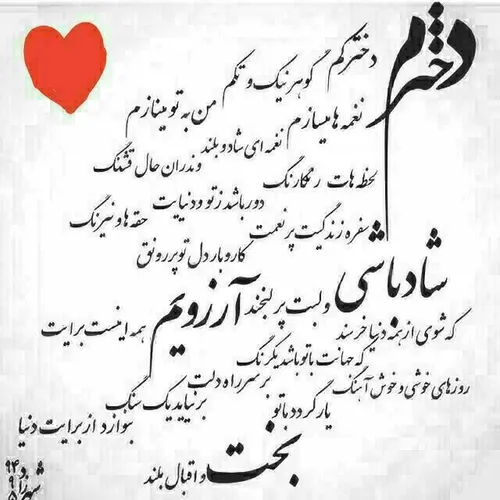 دخترم
دخترکم گوهر نیک و تکم
نغمه ها میسازم من به تو مینازم
نغمه ای شاد و بلند
لحظه هات رنگارنگ وندران حال قشنگ
دور باشد ز تو و دنیایت حقه ها و نیرنگ
سفره زندگیت پر نعمت
کار و بار دل تو پر رونق
شاد باشی و لبت پر لبخند آرزویم
که شوی از همه دنیا خرسند همه اینست برایت
که جهانت با تو باشد یکرنگ
روزهای خوشی و خوش آهنگ بر سر راه دلت
یار گردد با تو بر نیاید یک سنگ
بخت و اقبال بلند بنوازد از برایت دنیا
شهرزاد
۹۴
۹
۵